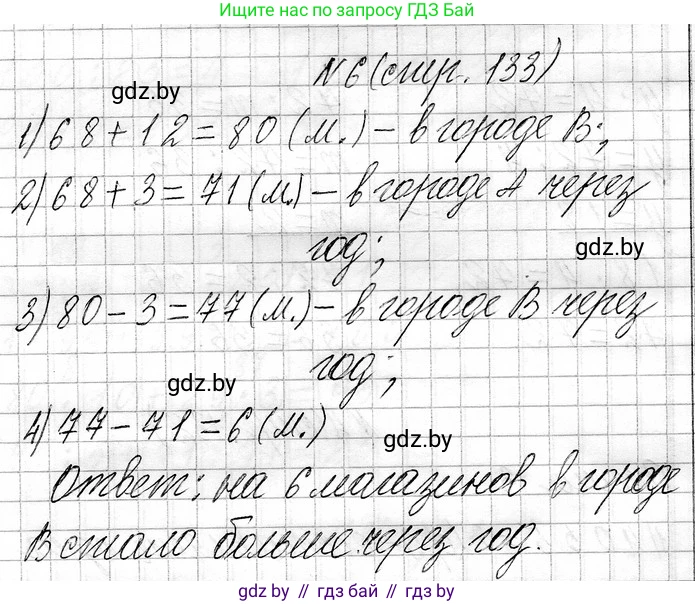 Ищите нас по запросу ГДЗ Бай
N 6 (стр. 133)
gdz.by
1) 68 + 12 = 80 (м.) – в городе В;
2) 68 + 3 = 71 (м.) – в городе А через
год;
gdz.by
3) 80 – 3 = 77 (м.) – в городе В через
год;
gdz.by
4) 77 – 71 = 6 (м.)
gdz.by
Ответ: на 6 магазинов в городе
В стало больше через год.
gdz by // гдз бай // gdz by // гдз бай